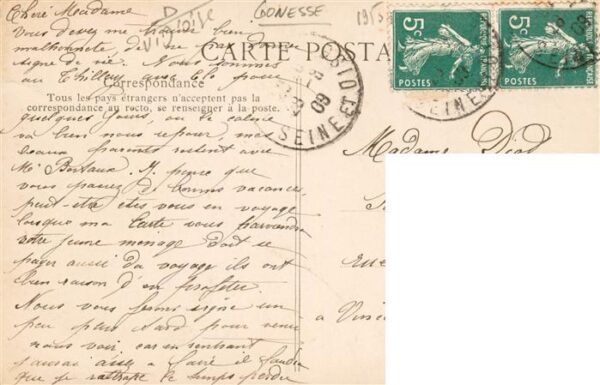 D
GONESSE
Chère Madame
Vous devez me trouver bien
malhonnête, de ne pas donner
signe de vie. Nous sommes
au Thillay avec
CARTE POSTA
5c
5c
POSTES
POSTES
Correspondance
Tous les pays étrangers n'acceptent pas la
correspondance au recto, se renseigner à la poste.
SEINE ET
09
quelques jours, où le calme
va bien nous reposer, mes
beaux parents restent avec
Me. Je pense que
vous passez de bonnes vacances,
peut-être êtes vous en voyage
lorsque ma carte vous parviendra
votre jeune ménage doit se
payer aussi du voyage ils ont
bien raison d'en profiter.
Nous vous ferons signe un
peu plus tard pour venir
nous voir car en rentrant
j'aurai assez à faire il faudra
que je rattrape le temps perdu
Madame Diot
rue
a Vin